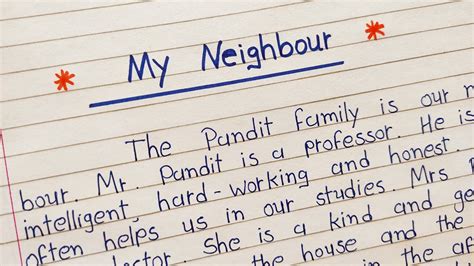 * My Neighbour *
The Pandit family is our
bour. Mr. Pandit is a professor. He is
intelligent, hard-working and honest.
often helps us in our studies. Mrs
She is a kind and
the house and the